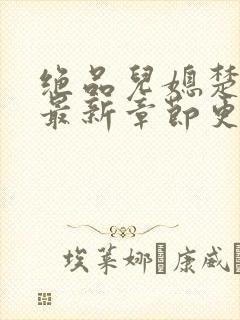 绝品兒媳楚
最新章節更
埃莱娜·康威